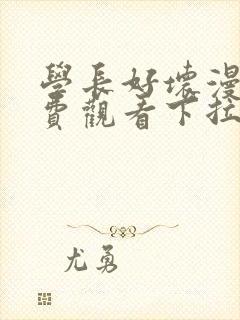 學長好壞漫
費觀看下拉
尤勇